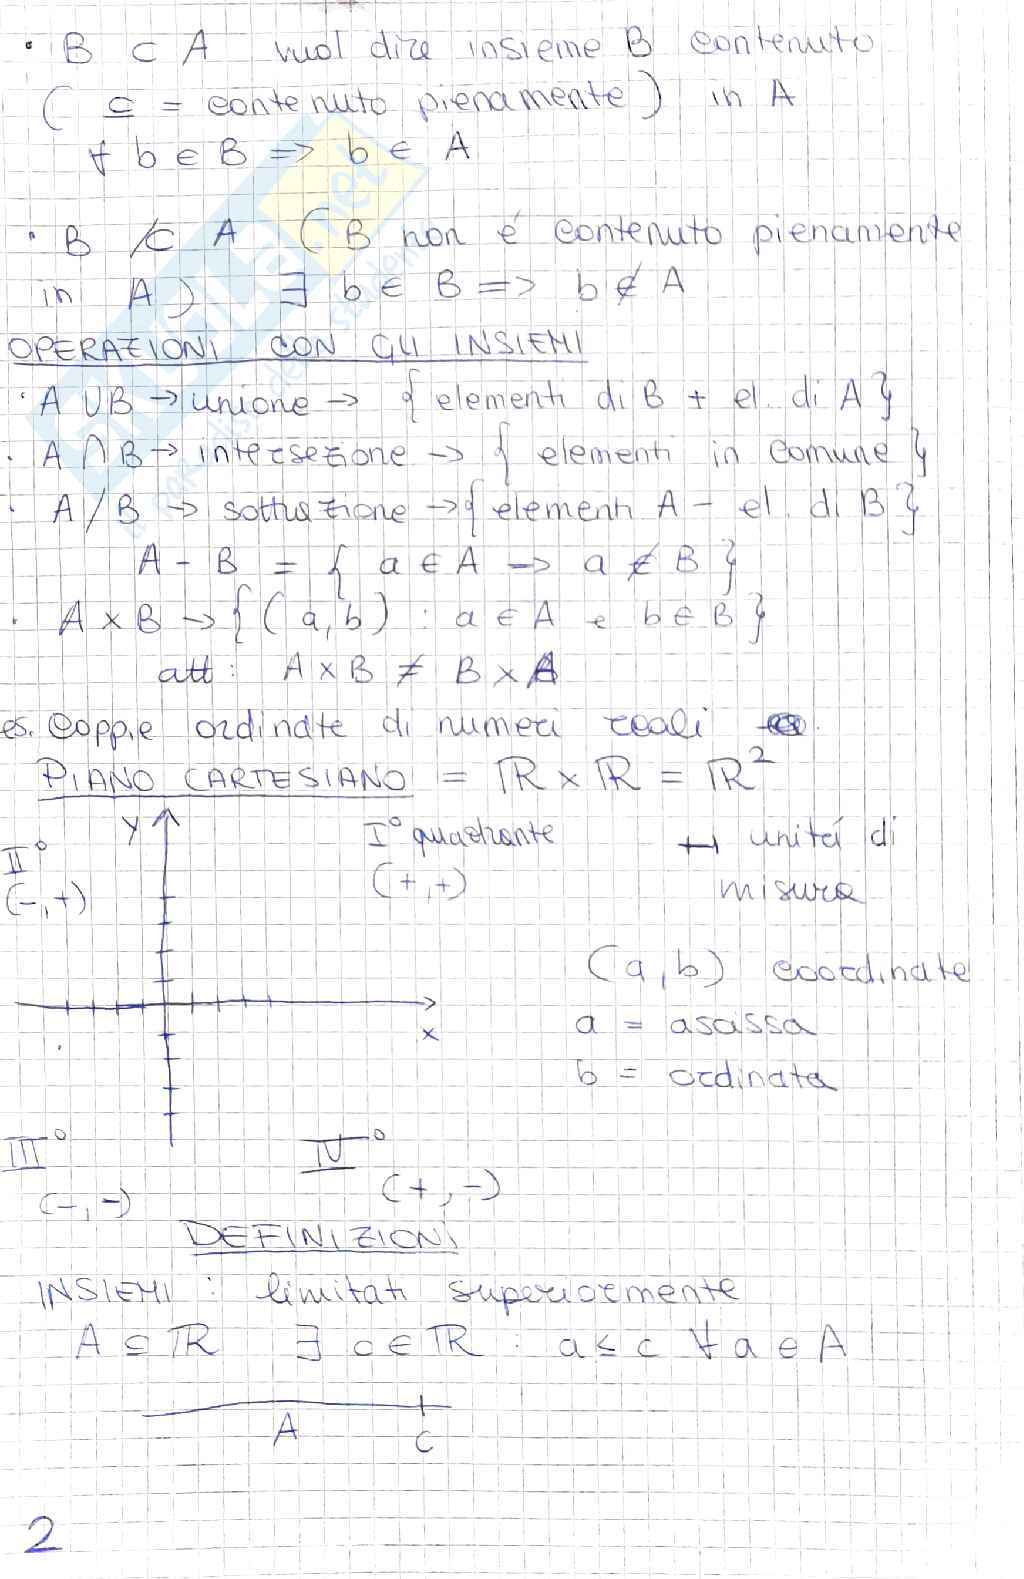 • B ⊂ A vuol dire insieme B contenuto
( ⊆ = contenuto pienamente ) in A
∀ b ∈ B => b ∈ A
• B ⊄ A ( B non é contenuto pienamente
in A ) ∃ b ∈ B => b ∉ A
OPERAZIONI CON GLI INSIEMI
• A ∪ B → unione → { elementi di B + el. di A }
• A ∩ B → intersezione → { elementi in comune }
• A / B → sottrazione → { elementi A - el. di B }
A - B = { a ∈ A → a ∉ B }
• A × B → { ( a, b ) : a ∈ A e b ∈ B }
att : A × B ≠ B × A
es. Coppie ordinate di numeri reali
PIANO CARTESIANO = ℝ × ℝ = ℝ²
y
I° quadrante
(+, +)
II°
(-, +)
unitá di
misura
(a, b) coordinate
a = ascissa
b = ordinata
x
III°
(-, -)
IV°
(+, -)
DEFINIZIONI
INSIEMI : limitati superiormente
A ⊆ ℝ ∃ c ∈ ℝ : a ≤ c ∀ a ∈ A
A
c
2